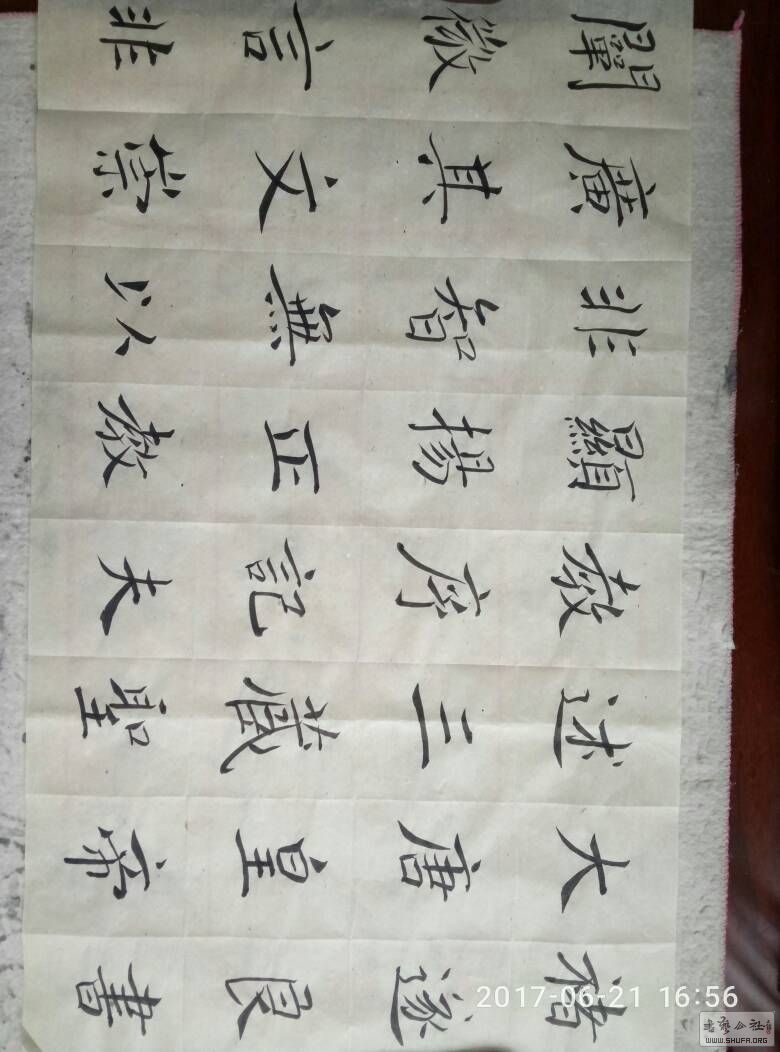 褚遂良書
大唐皇帝
述三藏聖
教序記夫
顯揚正教
非智無以
廣其文崇
闡微言非
2017-06-21 16:56
书艺公社
WWW.SHUFA.ORG